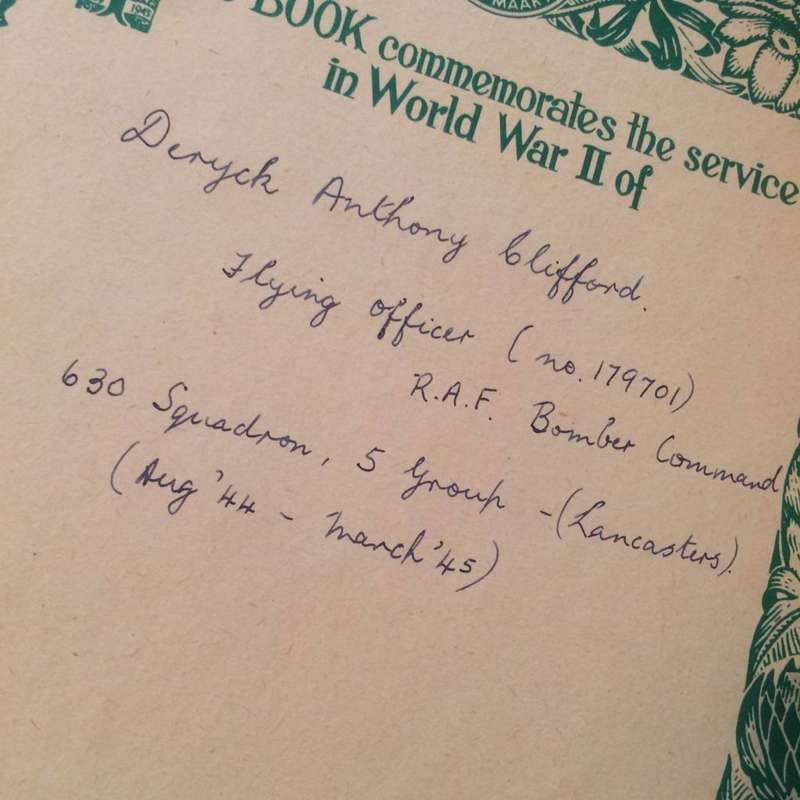 MAAK
BOOK commemorates the service
in World War II of
Deryck Anthony Clifford.
Flying Officer (no. 179701)
R.A.F. Bomber Command
630 Squadron, 5 Group - (Lancasters).
(Aug '44 - March '45)